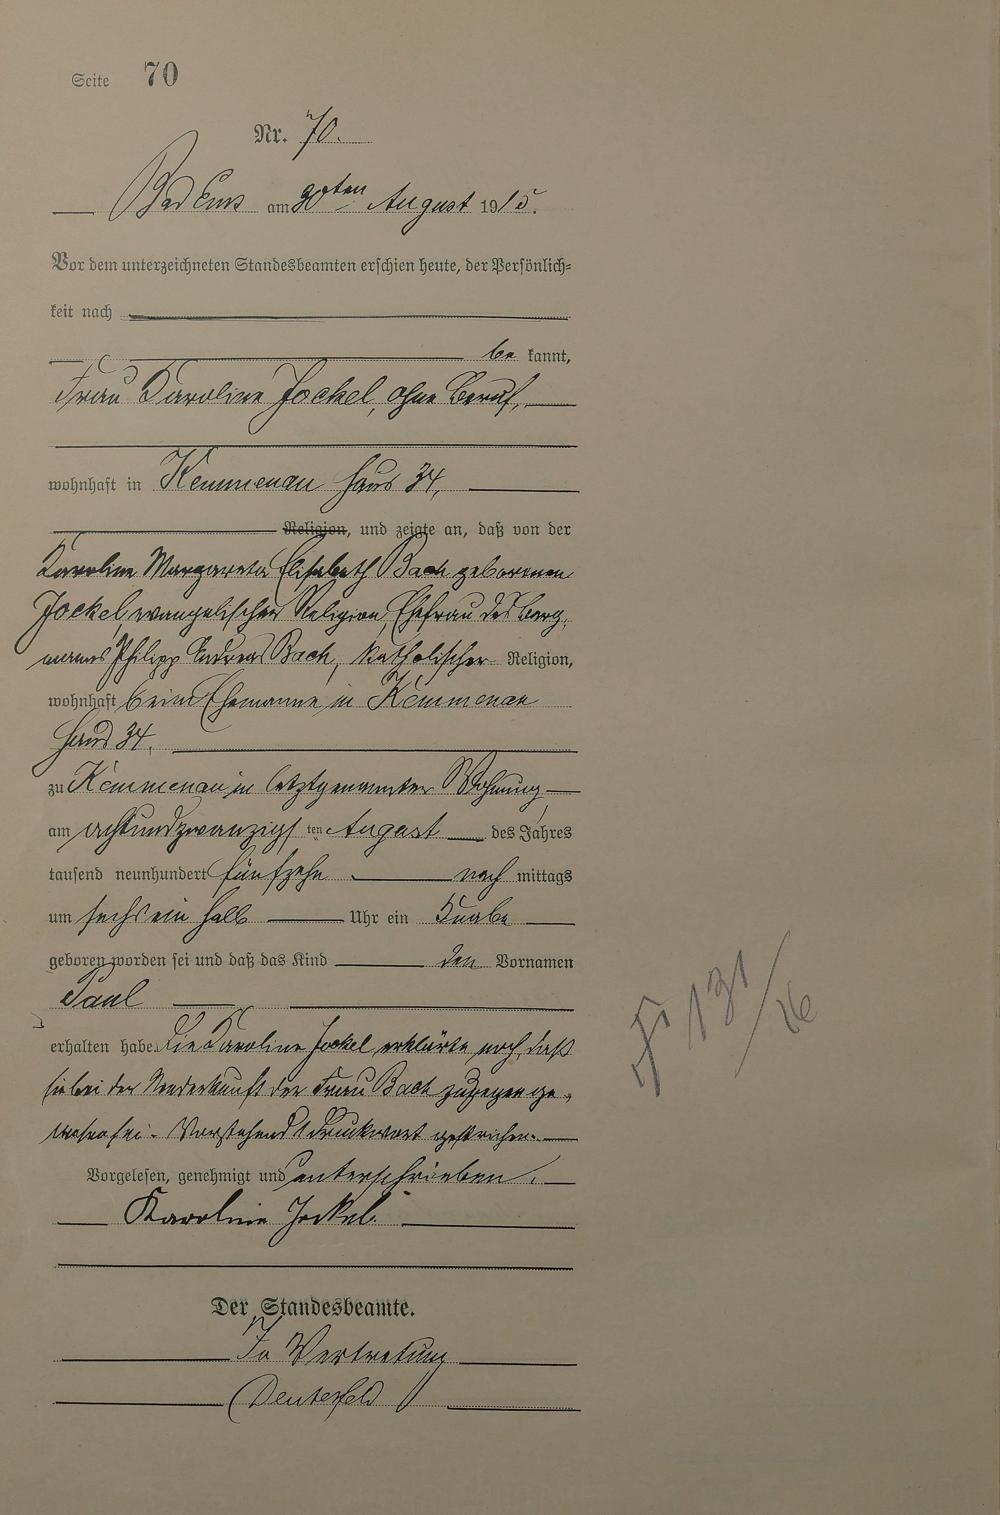 Seite 70
Nr. 70.
Bad Ems am 30ten August 1915.
Vor dem unterzeichneten Standesbeamten erschien heute, der Persönlich-
keit nach
be kannt,
Frau Karoline Jockel, ohne Beruf,
wohnhaft in Kemmenau Haus 34,
Religion, und zeigte an, daß von der
Karoline Margareta Elisabeth Bach geborenen
Jockel evangelischer Religion, Ehefrau des Berg-
manns Philipp Andreas Bach, katholischer Religion,
wohnhaft beim Ehemanne in Kemmenau
Haus 34,
zu Kemmenau in letztgenannter Wohnung
am achtundzwanzigsten August des Jahres
tausend neunhundert fünfzehn nach mittags
um sechs ein halb Uhr ein Knabe
geboren worden sei und daß das Kind den Vornamen
Paul
erhalten habe. Die Karoline Jockel erklärte noch, daß
sie bei der Niederkunft der Frau Bach zugegen ge-
wesen sei. Vorstehend 1 Druckwort gestrichen.
Vorgelesen, genehmigt und unterschrieben.
Karoline Jockel.
Der Standesbeamte.
In Vertretung
131/26